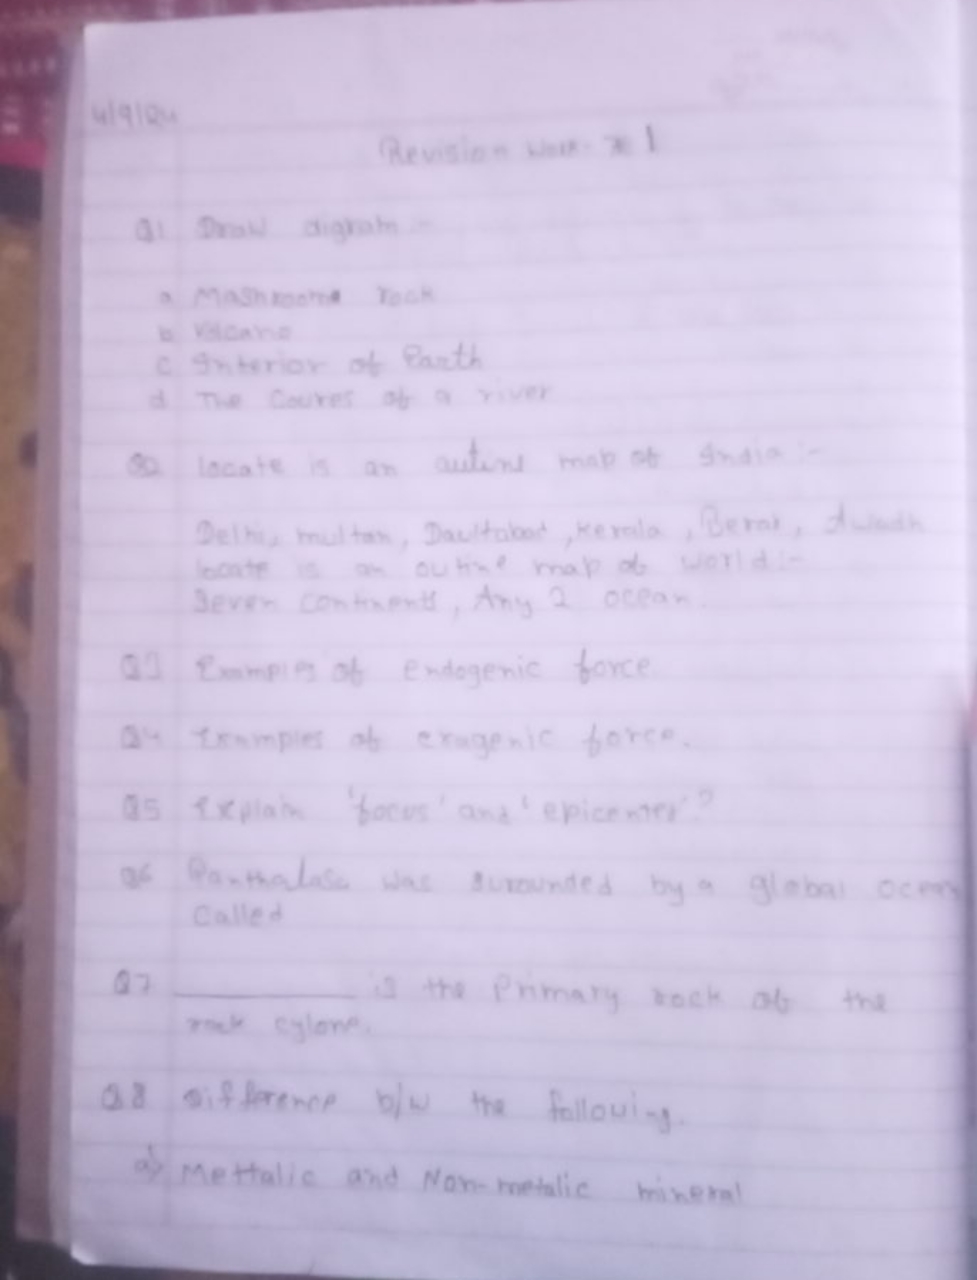 4/9/24
Revision work- 1
Q1 Draw digram :-
a Mashroome rock
b Volcano
c Interior of Earth
d The Coures of a river
Q2 locate is an autine map of India :-
Delhi, multan, Daultabad, Kerala, Berar, Awadh
locate is an outine map of world :-
Seven continents, Any 2 ocean
Q3 Examples of endogenic force.
Q4 Examples of exogenic force.
Q5 Explain 'focus' and 'epicenter'?
Q6 Panthalasa was surounded by a global ocean
called
Q7 __________ is the Primary rock of the
rock cylone.
Q8 Difference b/w the following.
a) Mettalic and Non-metalic mineral